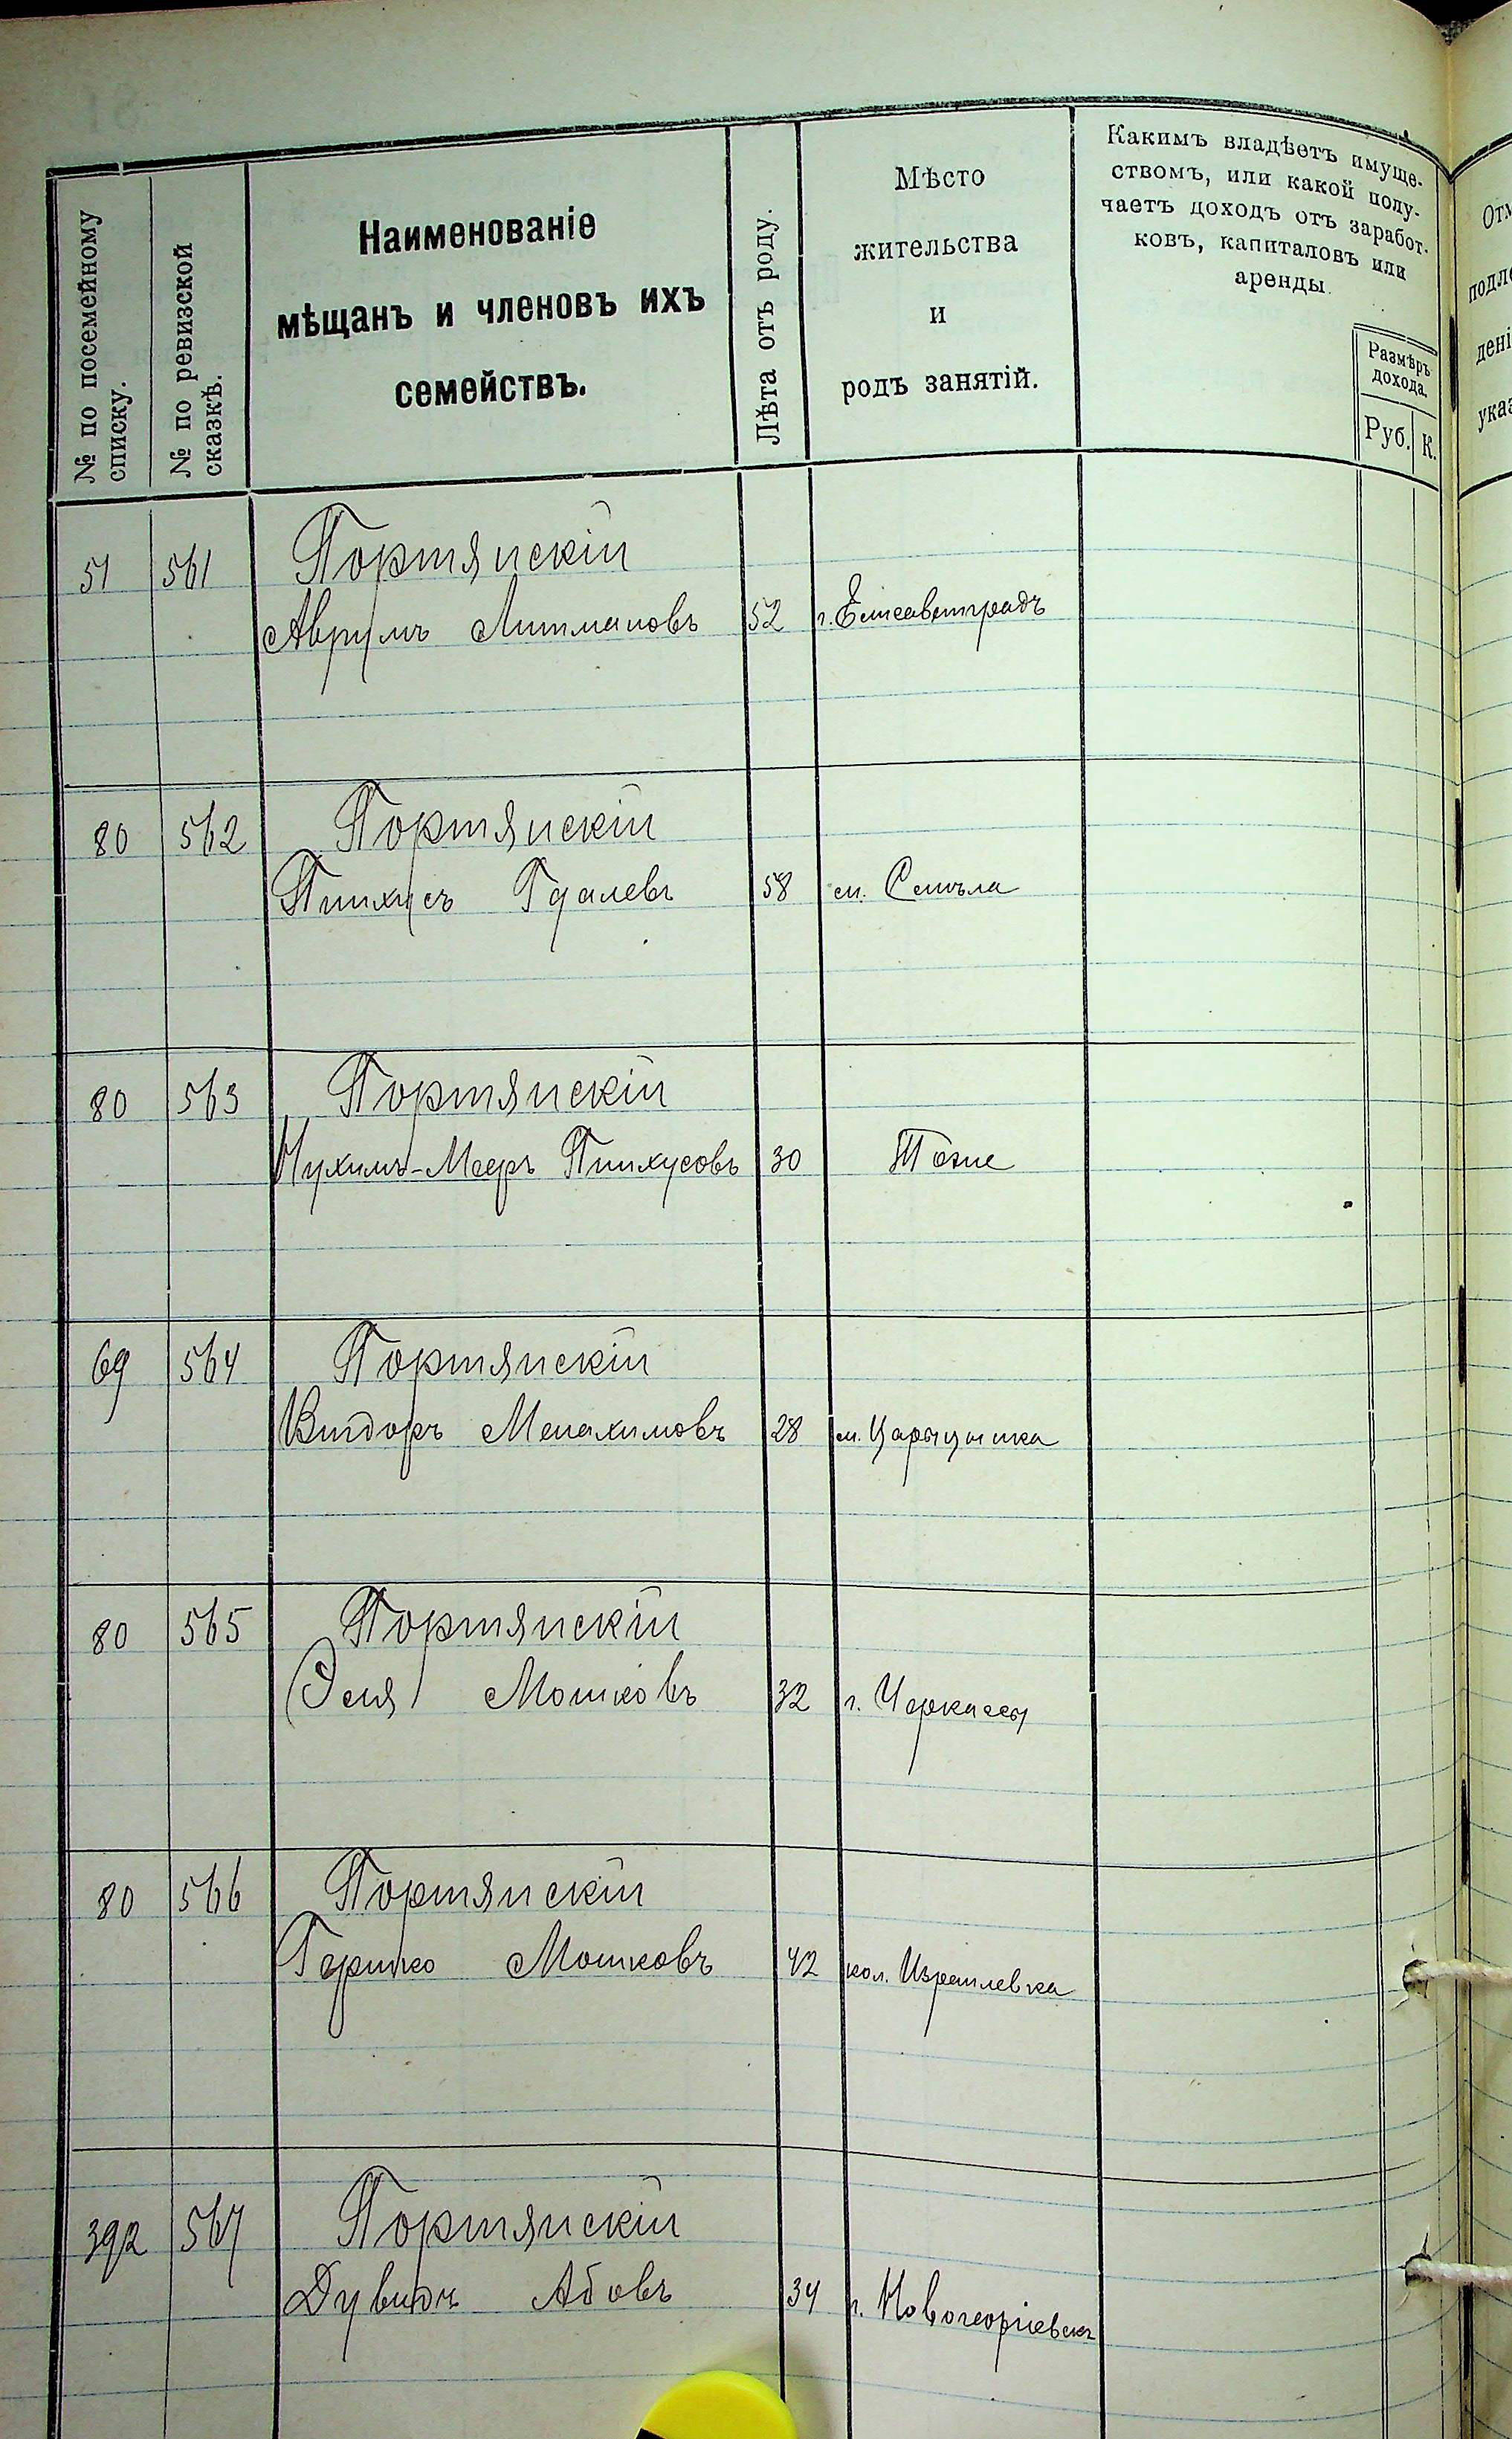 № по посемейному списку.
№ по ревизской сказкѣ.
Наименованіе
мѣщанъ и членовъ ихъ
семействъ.
Лѣта отъ роду.
Мѣсто
жительства
и
родъ занятій.
Какимъ владѣетъ имуще-
ствомъ, или какой полу-
чаетъ доходъ отъ заработ-
ковъ, капиталовъ или
аренды.
Размѣръ
дохода.
Руб. К.
51 561 Портянскій
Аврумъ Литмановъ 52 г. Елисаветградъ
80 562 Портянскій
Пинхусъ Гдалевъ 58 м. Смѣла
80 563 Портянскій
Нухимъ-Мееръ Пинхусовъ 30 Тоже
69 564 Портянскій
Вигдоръ Менахимовъ 28 м. Царычанка
80 565 Портянскій
Эля Мошковъ 32 г. Черкассы
80 566 Портянскій
Гершко Мошковъ 42 кол. Израилевка
392 567 Портянскій
Дувидъ Абовъ 34 г. Новогеоргіевскъ